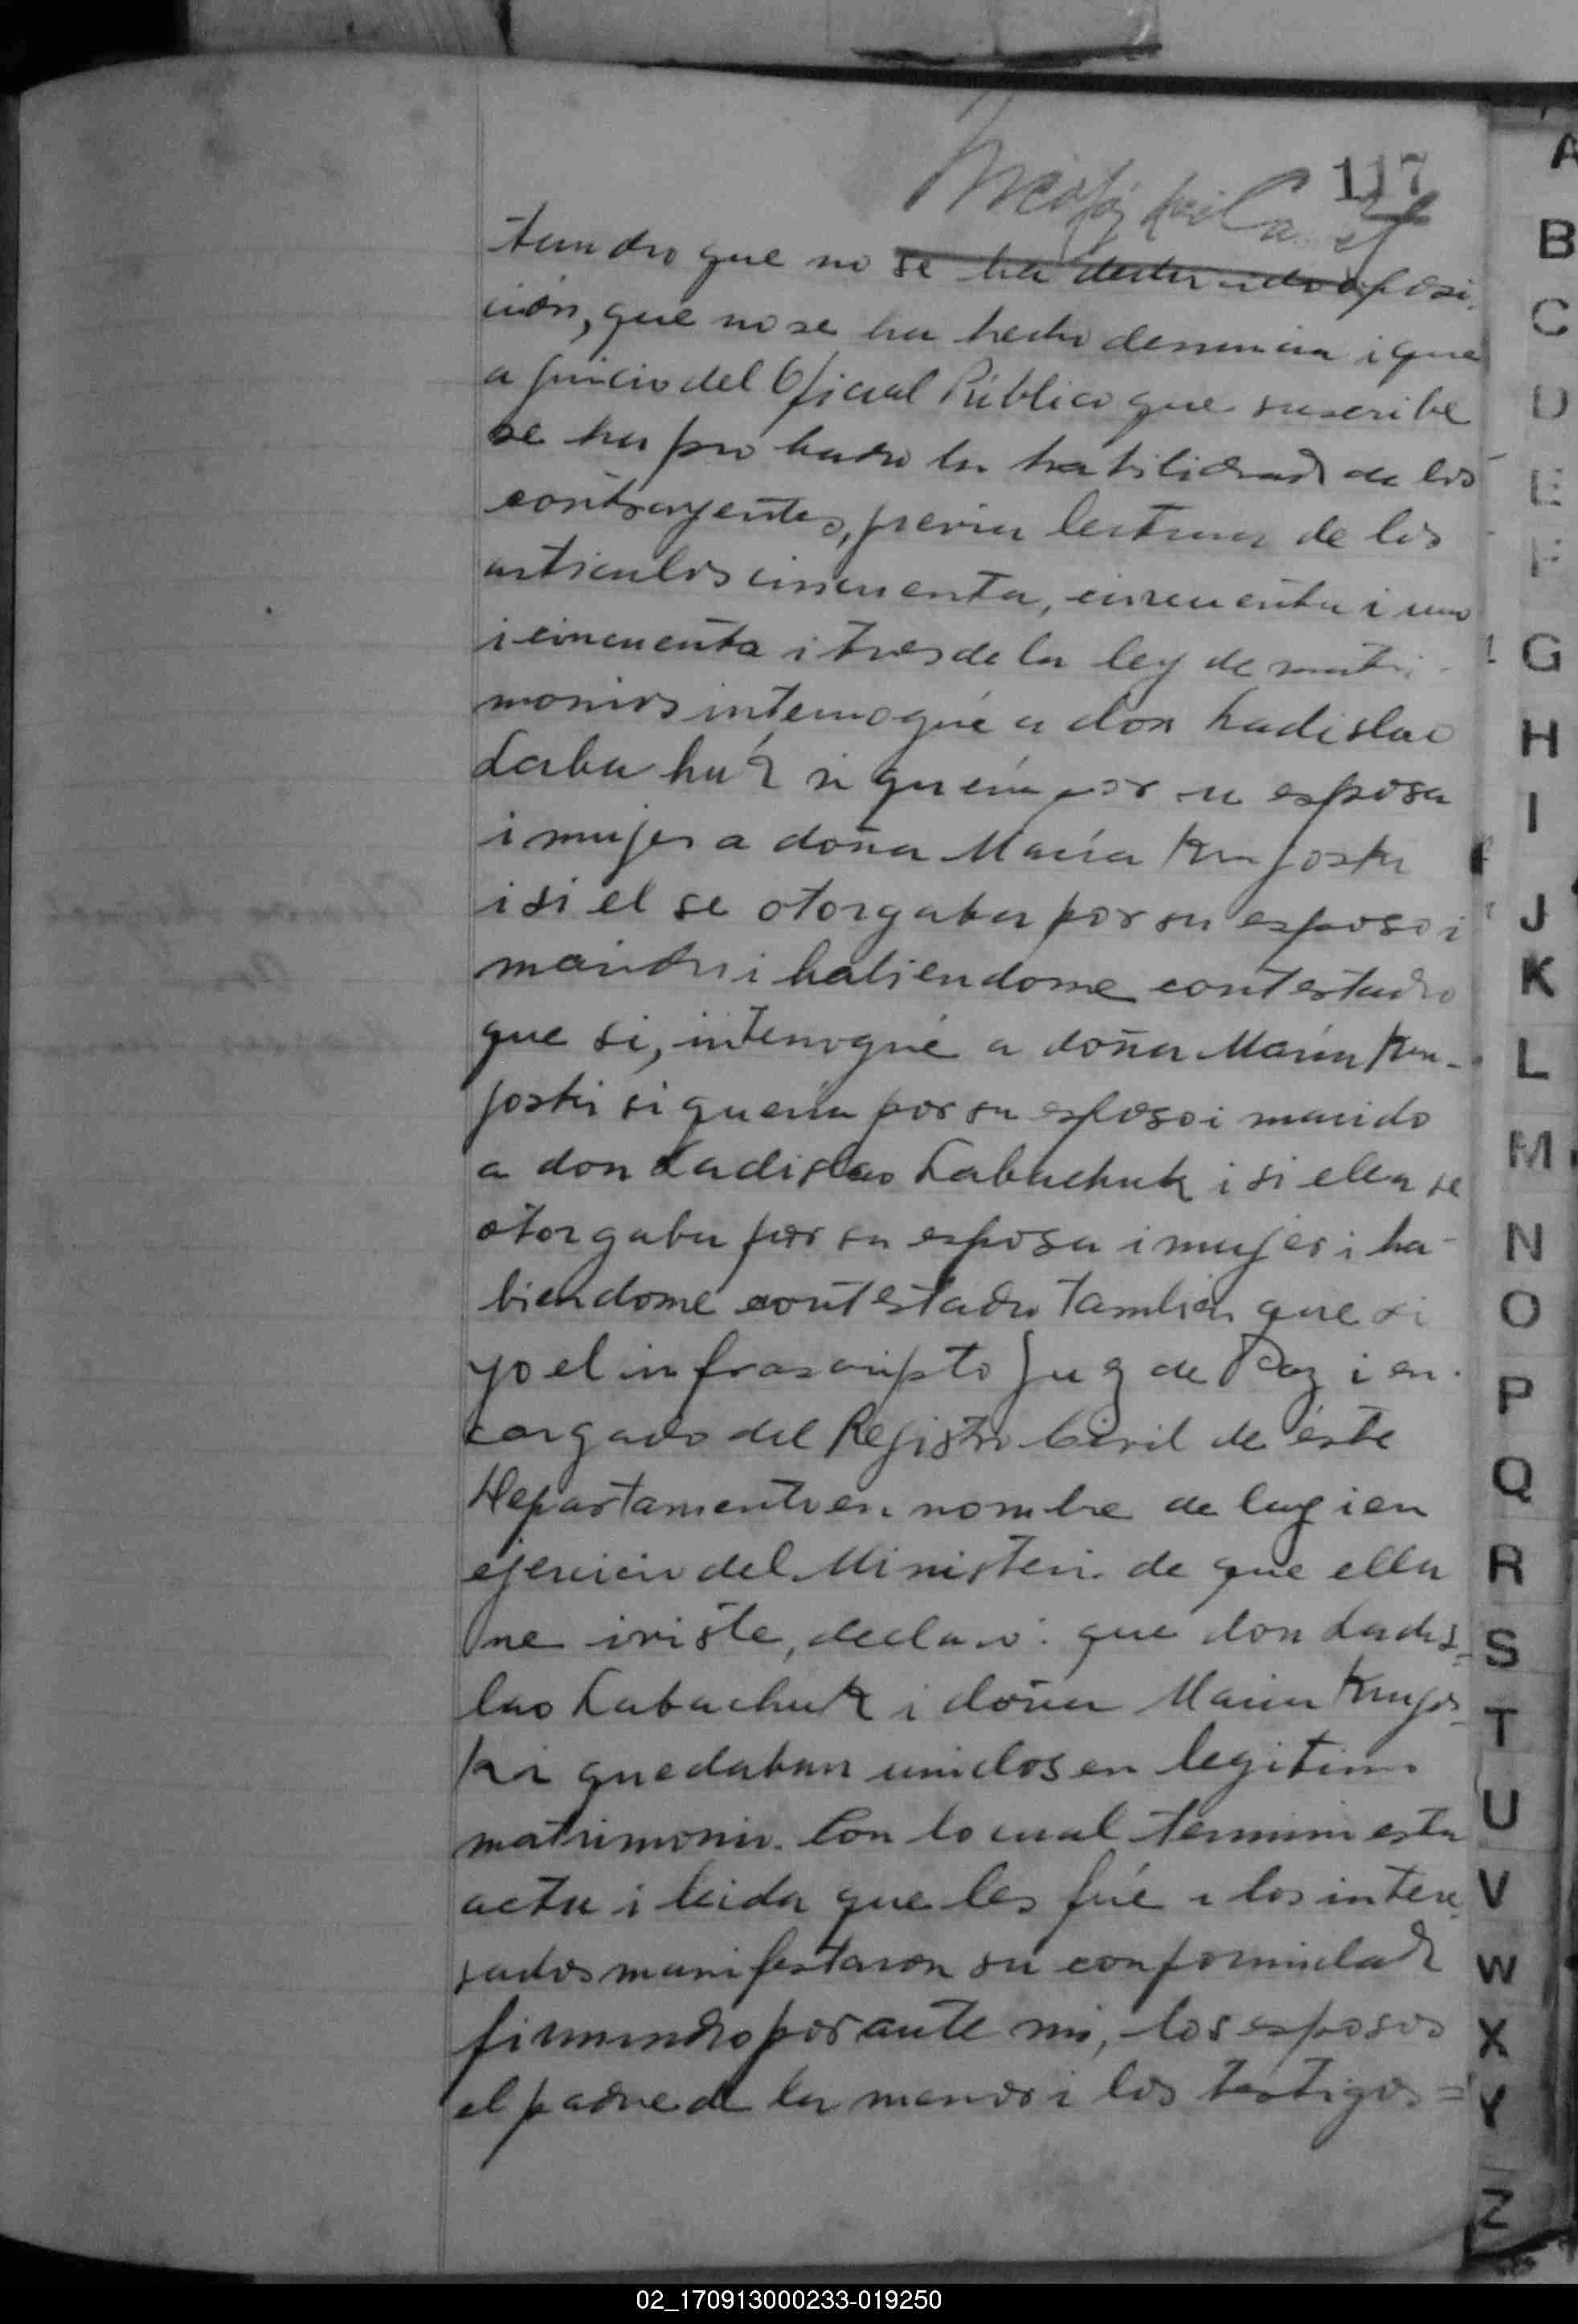 117
tando que no se ha deducido oposi-
ción, que no se ha hecho denuncia i que
a juicio del Oficial Público que suscribe
se ha probado la habilidad de los
contrayentes, previa lectura de los
articulos cincuenta, cincuenta i uno
i cincuenta i tres de la ley de matri-
monios interrogué a don Ladislao
Labachuk si queria por su esposa
i mujer a doña María Krujoski
i si el se otorgaba por su esposo i
marido i habiendome contestado
que si, interrogué a doña María Kru-
joski si queria por su esposo i marido
a don Ladislao Labachuk i si ella se
otorgaba por su esposa i mujer i ha-
biendome contestado tambien que si
yo el infrascripto Juez de Paz i en-
cargado del Registro Civil de éste
Departamento en nombre de ley i en
ejercicio del Ministerio de que ella
me iviste, declaro: que don Ladis-
lao Labachuk i doña Maria Krujos-
ki quedaban unidos en legitimo
matrimonio. Con lo cual termino esta
acta i leida que les fué a los intere-
sados manifestaron su conformidad
firmando por ante mi, los esposos
el padre de la menor i los testigos =
A
B
C
D
E
F
G
H
I
J
K
L
M
N
O
P
Q
R
S
T
U
V
W
X
Y
Z
02_170913000233-019250